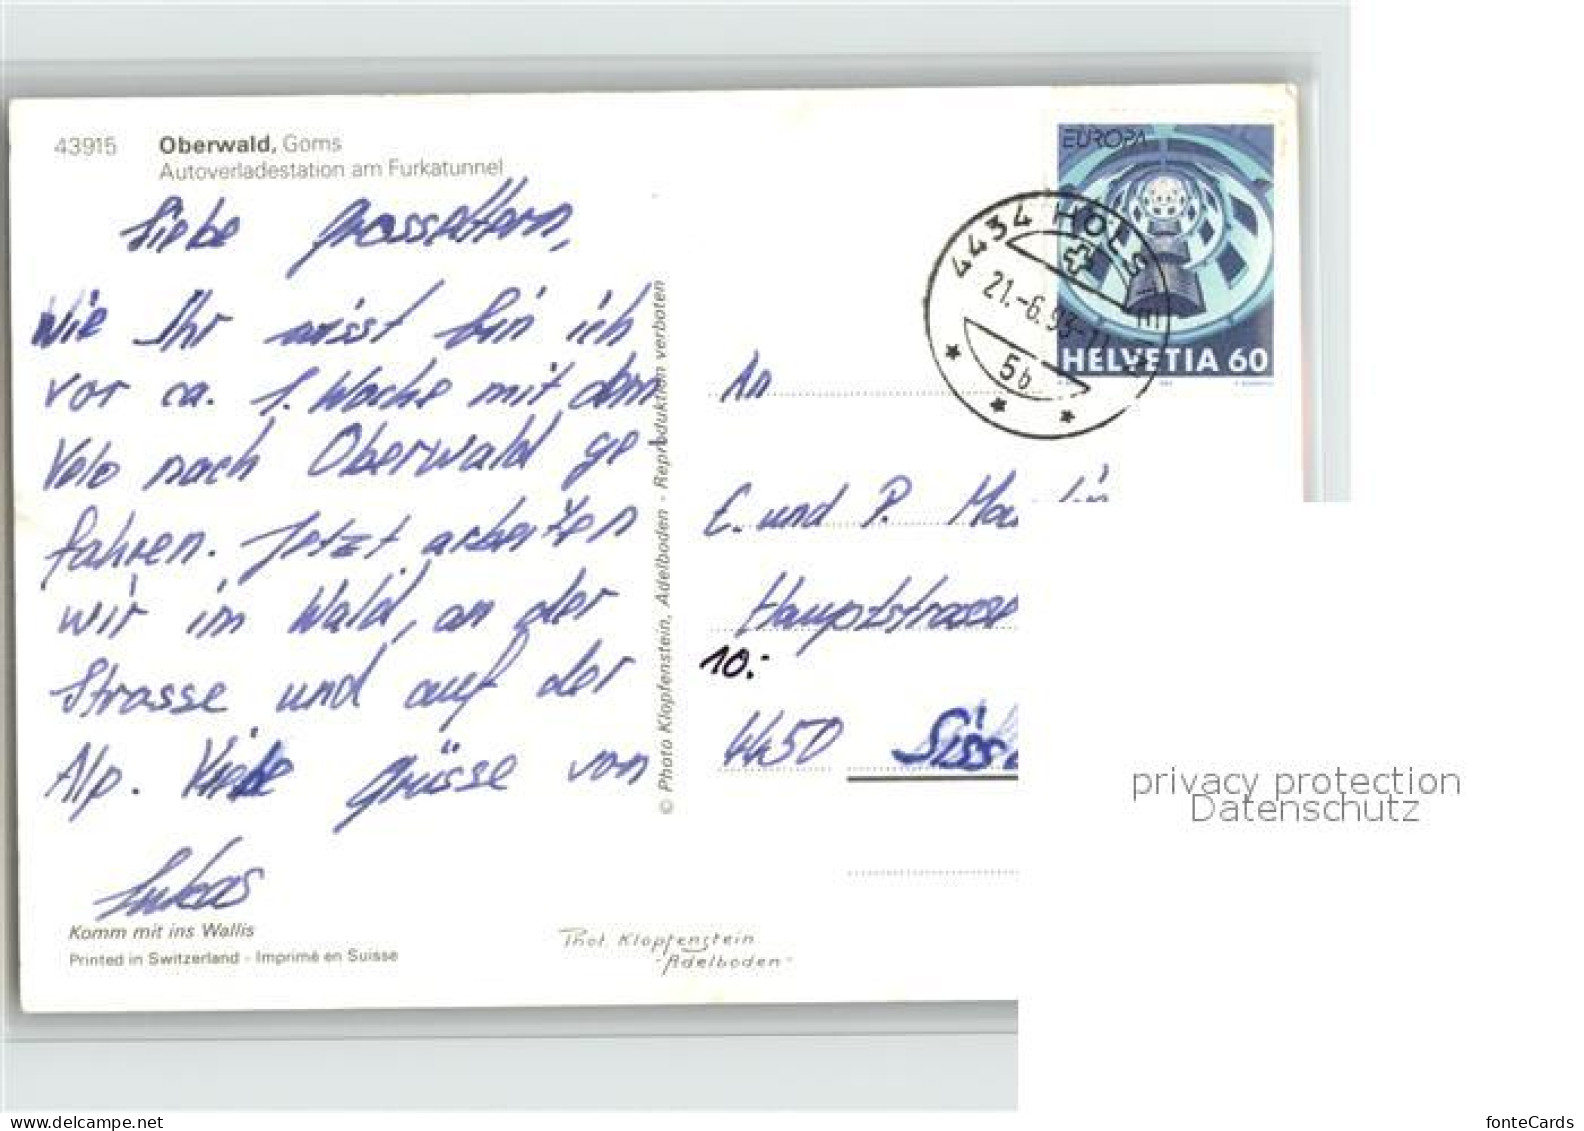 43915 Oberwald, Goms
Autoverladestation am Furkatunnel
Liebe Grosseltern,
Wie Ihr wisst bin ich
vor ca. 1. Woche mit dem
Velo nach Oberwald ge-
fahren. Jetzt arbeiten
wir im Wald, an der
Strasse und auf der
Alp. Viele Grüsse von
Lukas
Komm mit ins Wallis
Printed in Switzerland - Imprimé en Suisse
© Photo Klopfenstein, Adelboden - Reproduktion verboten
Phot Klopfenstein
-Adelboden-
EUROPA
HELVETIA 60
4434 HÖLSTEIN
21.-6.93-11
5b
An
E. und P.
Hauptstrasse
10.-
4450 Siss
privacy protection
Datenschutz
fonteCards